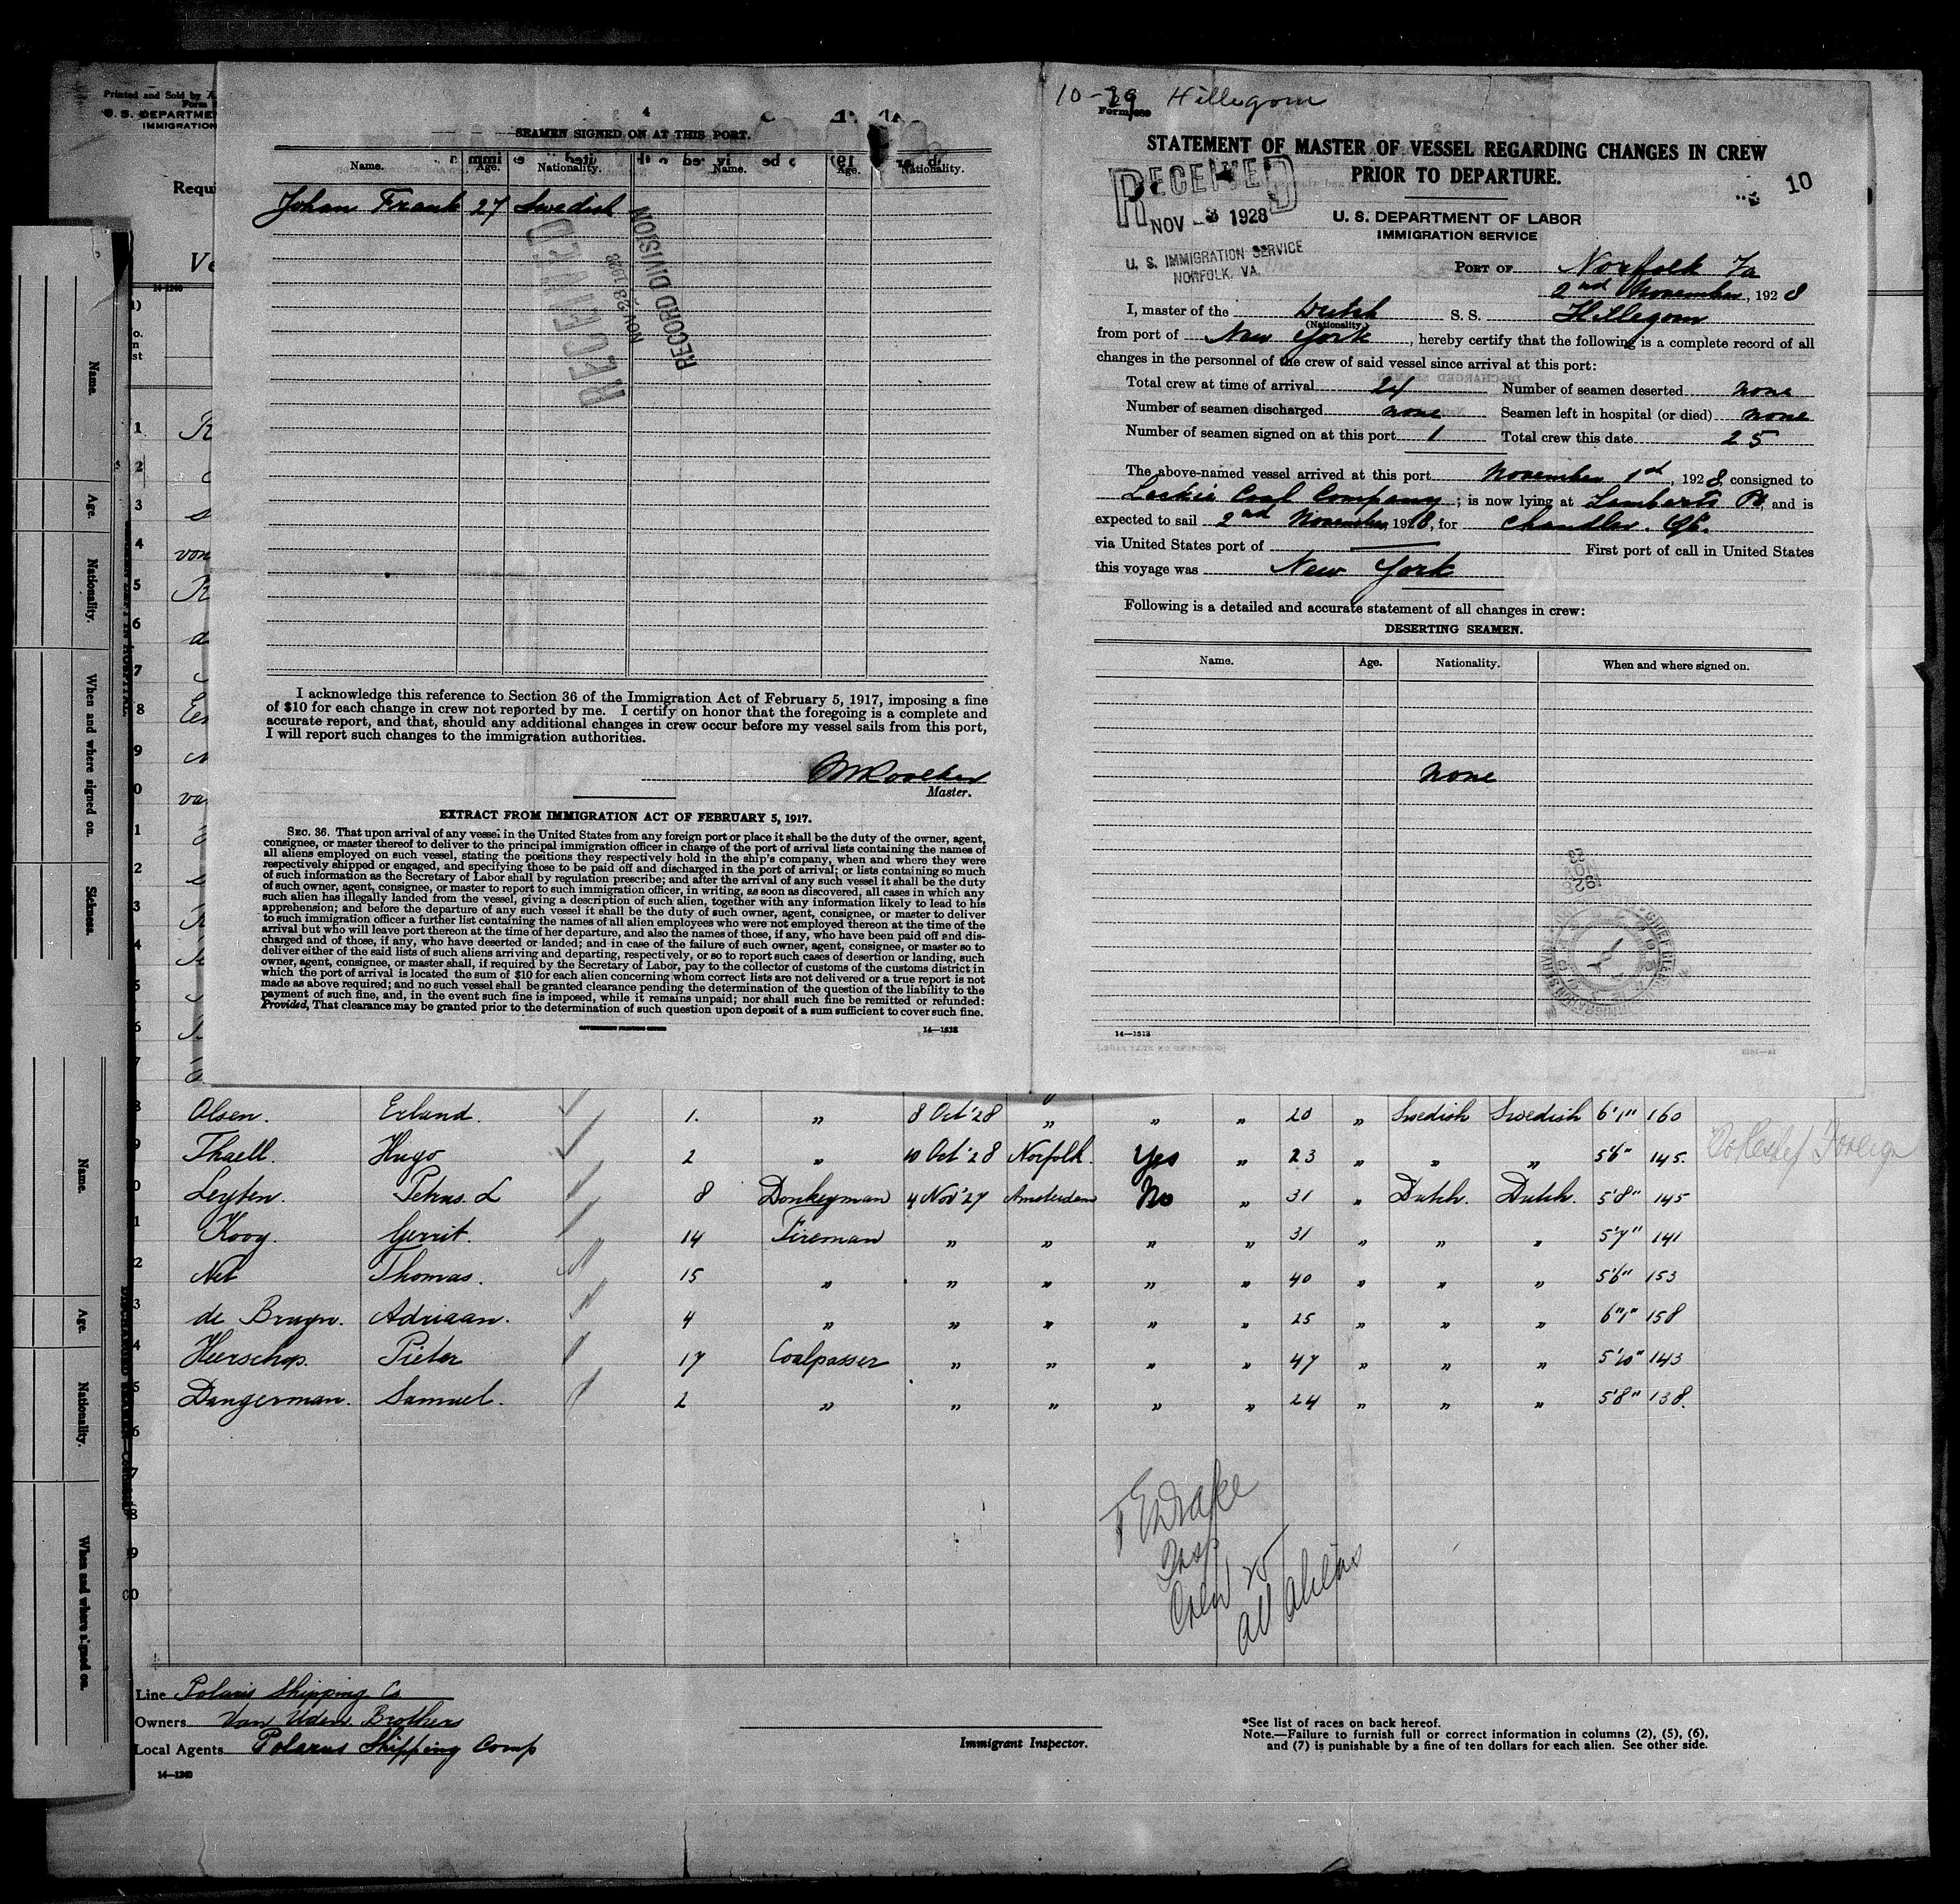 Printed and Sold by A
Form
U. S. DEPARTME
IMMIGRATION
Requi
Ve
14-1240
SEAMEN SIGNED ON AT THIS PORT.
Name. Age. Nationality. Name. Age. Nationality.
Johan Frank 27 Swedish
RECEIVED
NOV 23 1928
RECORD DIVISION
I acknowledge this reference to Section 36 of the Immigration Act of February 5, 1917, imposing a fine
of $10 for each change in crew not reported by me. I certify on honor that the foregoing is a complete and
accurate report, and that, should any additional changes in crew occur before my vessel sails from this port,
I will report such changes to the immigration authorities.
Master.
EXTRACT FROM IMMIGRATION ACT OF FEBRUARY 5, 1917.
SEC. 36. That upon arrival of any vessel in the United States from any foreign port or place it shall be the duty of the owner, agent,
consignee, or master thereof to deliver to the principal immigration officer in charge of the port of arrival lists containing the names of
all aliens employed on such vessel, stating the positions they respectively hold in the ship's company, when and where they were
respectively shipped or engaged, and specifying those to be paid off and discharged in the port of arrival; or lists containing so much
of such information as the Secretary of Labor shall by regulation prescribe; and after the arrival of any such vessel it shall be the duty
of such owner, agent, consignee, or master to report to such immigration officer, in writing, as soon as discovered, all cases in which any
such alien has illegally landed from the vessel, giving a description of such alien, together with any information likely to lead to his
apprehension; and before the departure of any such vessel it shall be the duty of such owner, agent, consignee, or master to deliver
to such immigration officer a further list containing the names of all alien employees who were not employed thereon at the time of the
arrival but who will leave port thereon at the time of her departure, and also the names of those, if any, who have been paid off and dis-
charged and of those, if any, who have deserted or landed; and in case of the failure of such owner, agent, consignee, or master so to
deliver either of the said lists of such aliens arriving and departing, respectively, or so to report such cases of desertion or landing, such
owner, agent, consignee, or master shall, if required by the Secretary of Labor, pay to the collector of customs of the customs district in
which the port of arrival is located the sum of $10 for each alien concerning whom correct lists are not delivered or a true report is not
made as above required; and no such vessel shall be granted clearance pending the determination of the question of the liability to the
payment of such fine, and, in the event such fine is imposed, while it remains unpaid; nor shall such fine be remitted or refunded:
Provided, That clearance may be granted prior to the determination of such question upon deposit of a sum sufficient to cover such fine.
GOVERNMENT PRINTING OFFICE 14—1513
Hillegom
STATEMENT OF MASTER OF VESSEL REGARDING CHANGES IN CREW
PRIOR TO DEPARTURE.
10
RECEIVED
NOV 3 1928
U. S. IMMIGRATION SERVICE
NORFOLK, VA.
U. S. DEPARTMENT OF LABOR
IMMIGRATION SERVICE
PORT OF Norfolk Va
2nd November, 1928
I, master of the Dutch S. S. Hillegom
(Nationality.)
from port of New York, hereby certify that the following is a complete record of all
changes in the personnel of the crew of said vessel since arrival at this port:
Total crew at time of arrival 24 Number of seamen deserted none
Number of seamen discharged none Seamen left in hospital (or died) none
Number of seamen signed on at this port 1 Total crew this date 25
The above-named vessel arrived at this port November 1st, 1928, consigned to
Leckie Coal Company; is now lying at Lamberts Pt, and is
expected to sail 2nd November, 1928, for Chandler. Qc.
via United States port of — First port of call in United States
this voyage was New York
Following is a detailed and accurate statement of all changes in crew:
DESERTING SEAMEN.
Name. Age. Nationality. When and where signed on.
none
14—1513
Name. Age. Nationality. When and where signed on. Sickness.
Name. Age. Nationality. When and where signed on.
Olsen. Erland. 1. „ 8 Oct '28 „ „ „ 20 „ Swedish Swedish 6'1" 160
Thaell. Hugo 2 „ 10 Oct '28 Norfolk. Yes „ 23 „ „ „ 5'6" 145.
Leyten. Petrus. L 8 Donkeyman 4 Nov '27 Amsterdam No „ 31 „ Dutch. Dutch. 5'8" 145
Kooy. Gerrit. 14 Fireman „ „ „ „ 31 „ „ „ 5'7" 141
Net Thomas. 15 „ „ „ „ „ 40 „ „ „ 5'6" 153
de Bruyn. Adriaan. 4 „ „ „ „ „ 25 „ „ „ 6'1" 158
Heerschop. Pieter 17 Coalpasser „ „ „ „ 47 „ „ „ 5'10" 143
Dangerman. Samuel. 2 „ „ „ „ „ 24 „ „ „ 5'8" 138.
Drake
Insp
Crew 25
all aliens
Line Polaris Shipping Co
Owners Van Uden Brothers
Local Agents Polarus Shipping Comp
14—1240
Immigrant Inspector.
*See list of races on back hereof.
Note.—Failure to furnish full or correct information in columns (2), (5), (6),
and (7) is punishable by a fine of ten dollars for each alien. See other side.